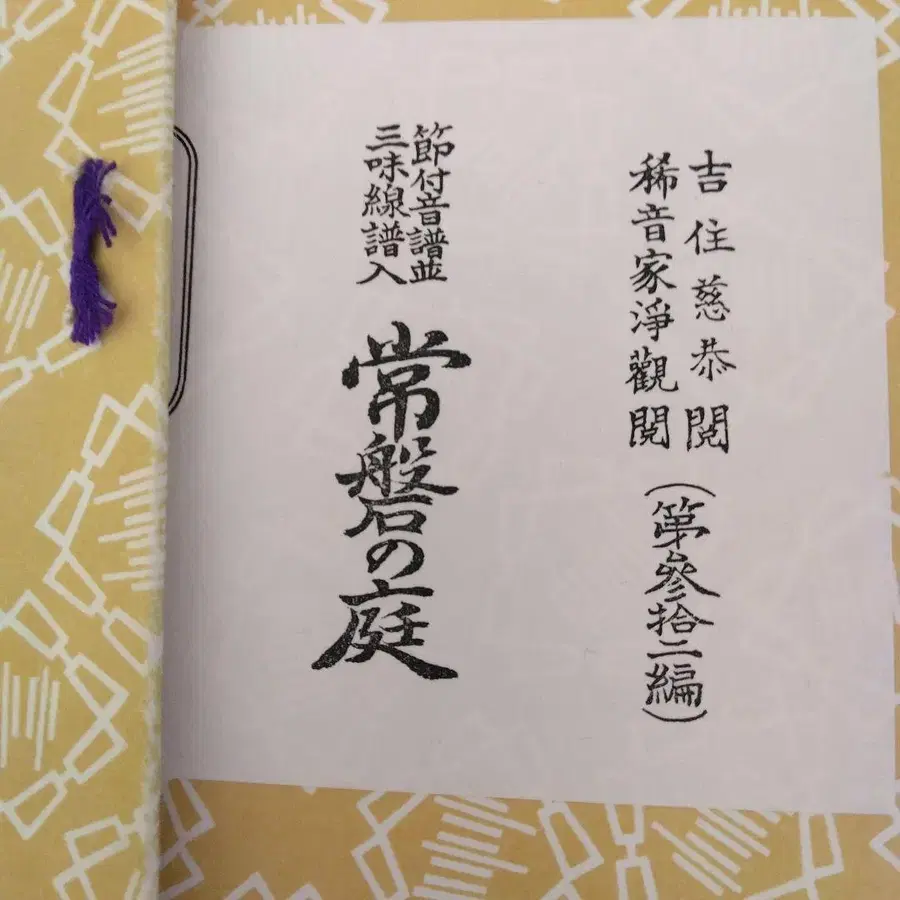 吉住慈恭閲
稀音家淨觀閲
(第參拾二編)
節付音譜並
三味線譜入
常磐の庭